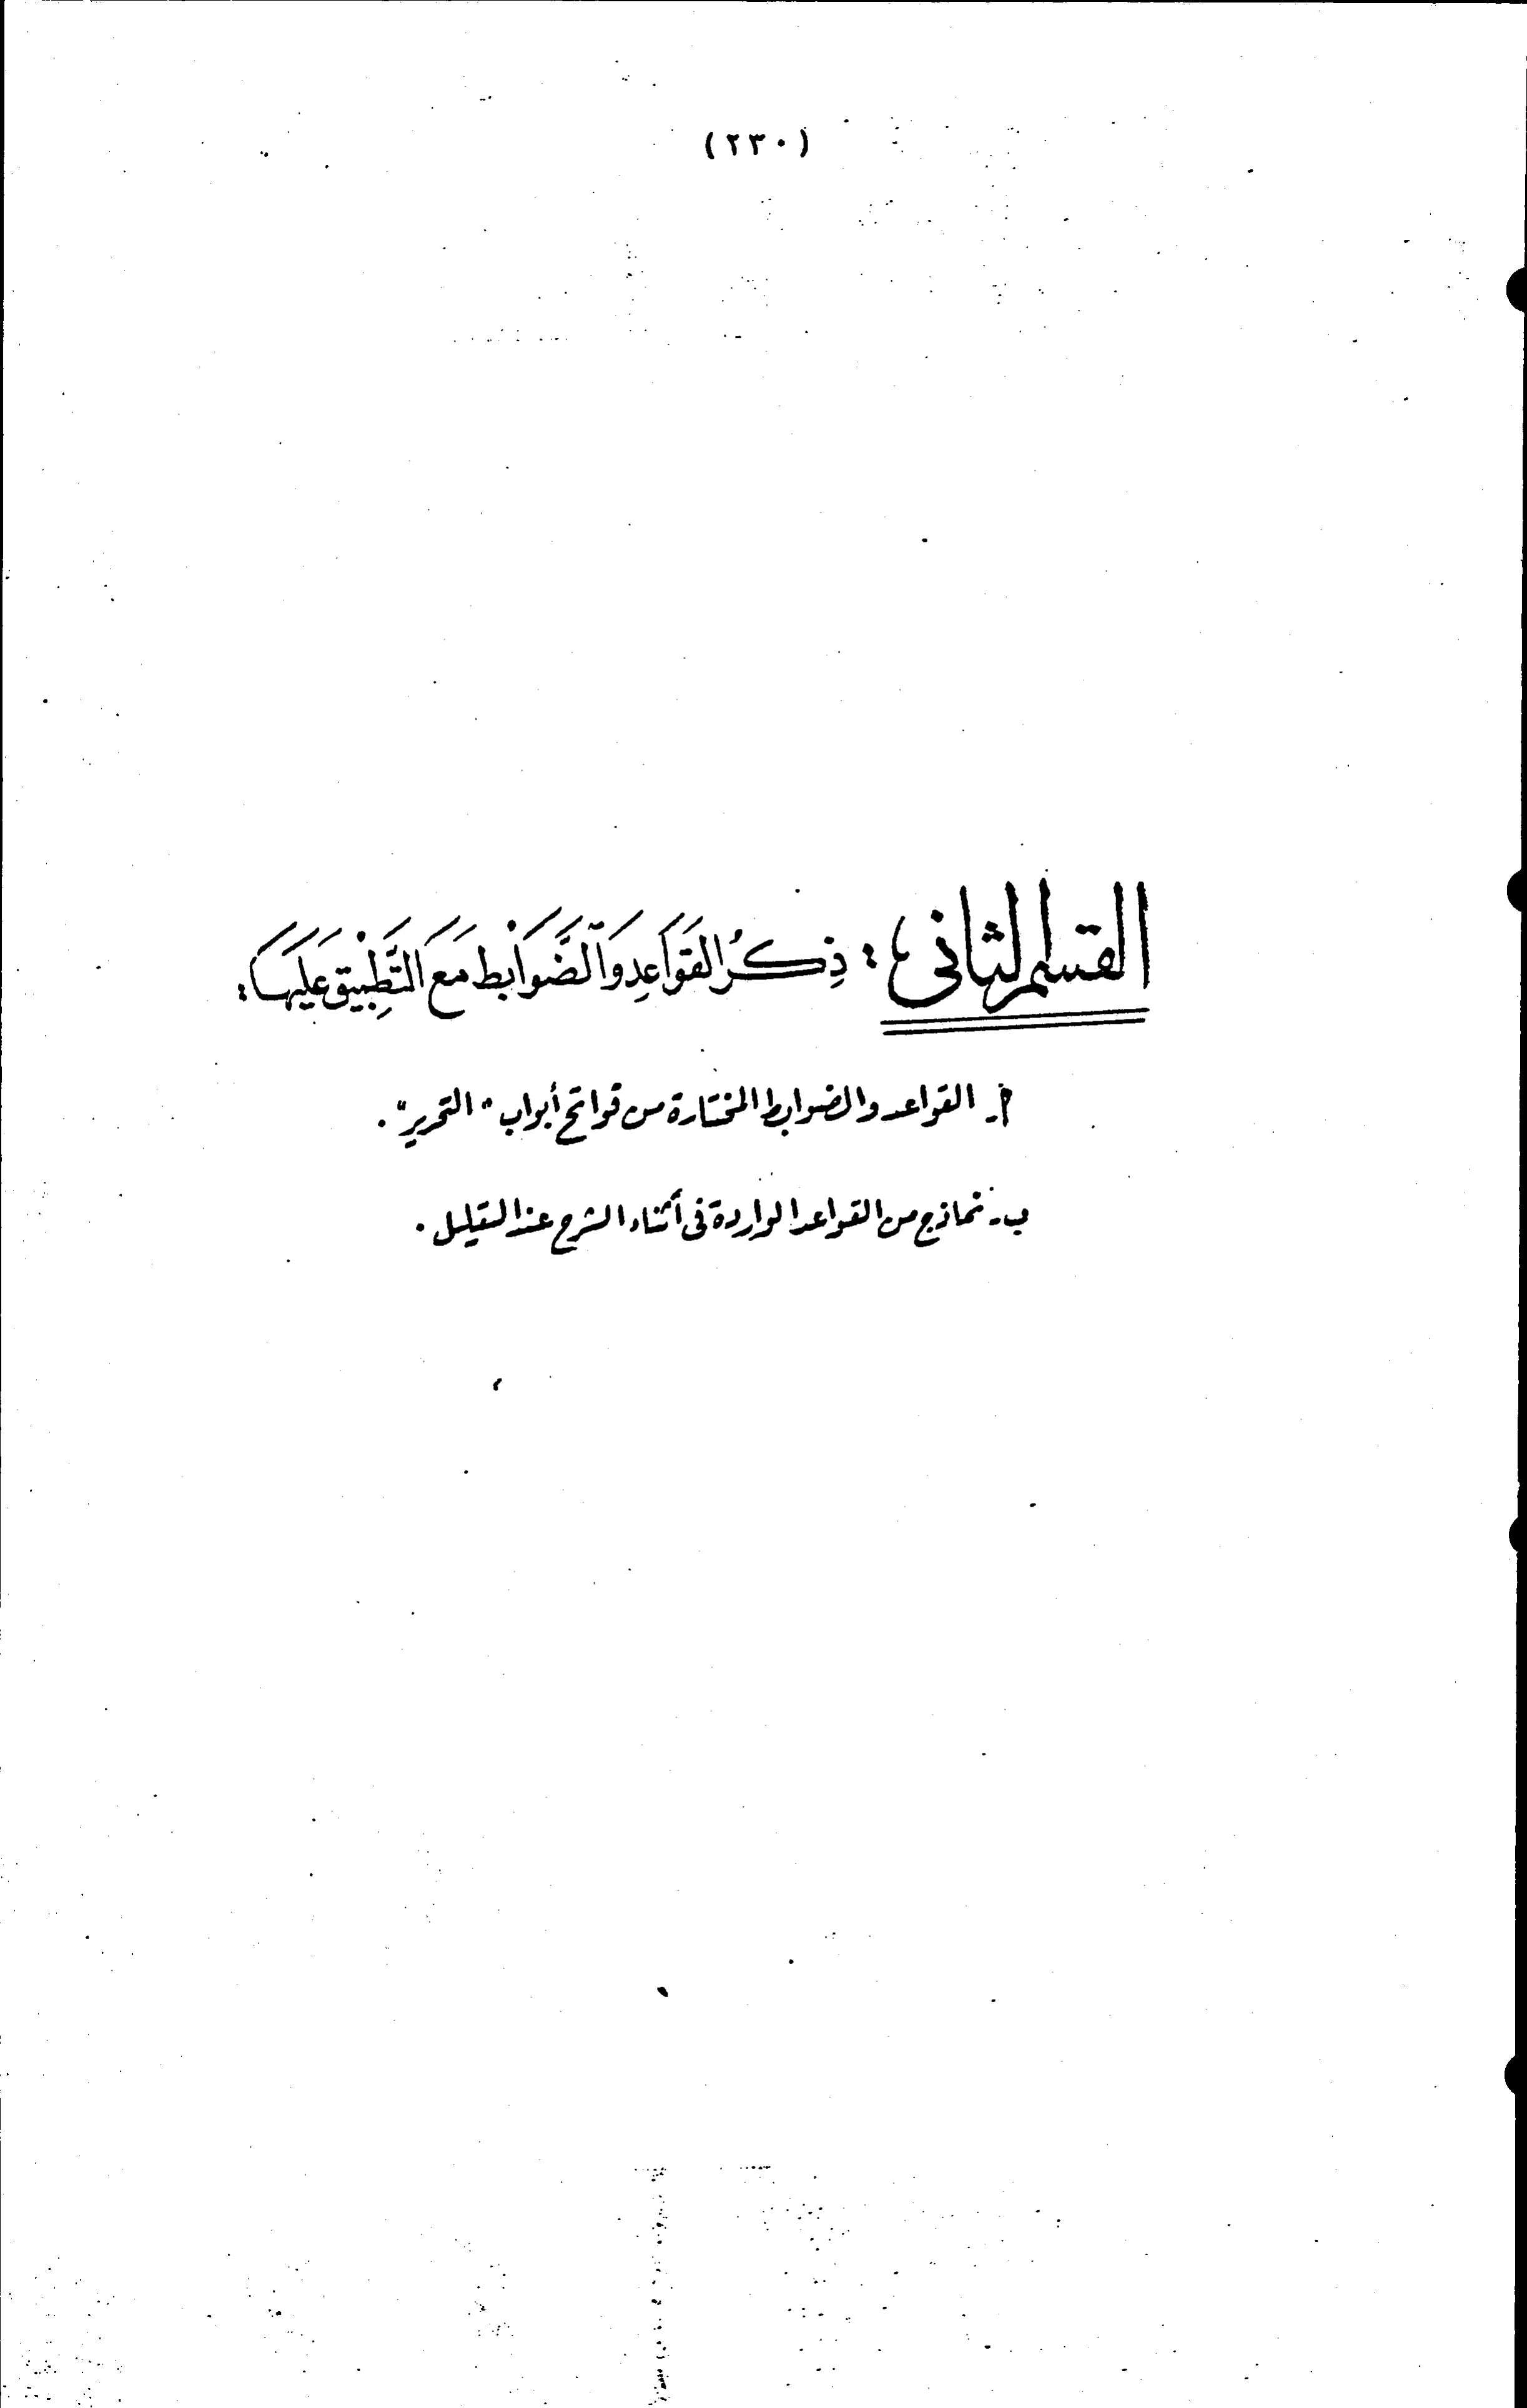 (٢٣٠)
القسم الثانى : ذِكْرُ القَوَاعِدِ وَالضَّوَابِط مَعَ التَّطْبِيقِ عَلَيهَا :
أ- القواعد والضوابط المختارة من فواتح أبواب "التحرير".
ب- نماذج من القواعد الواردة فى أثناء الشرح عند التعليل.